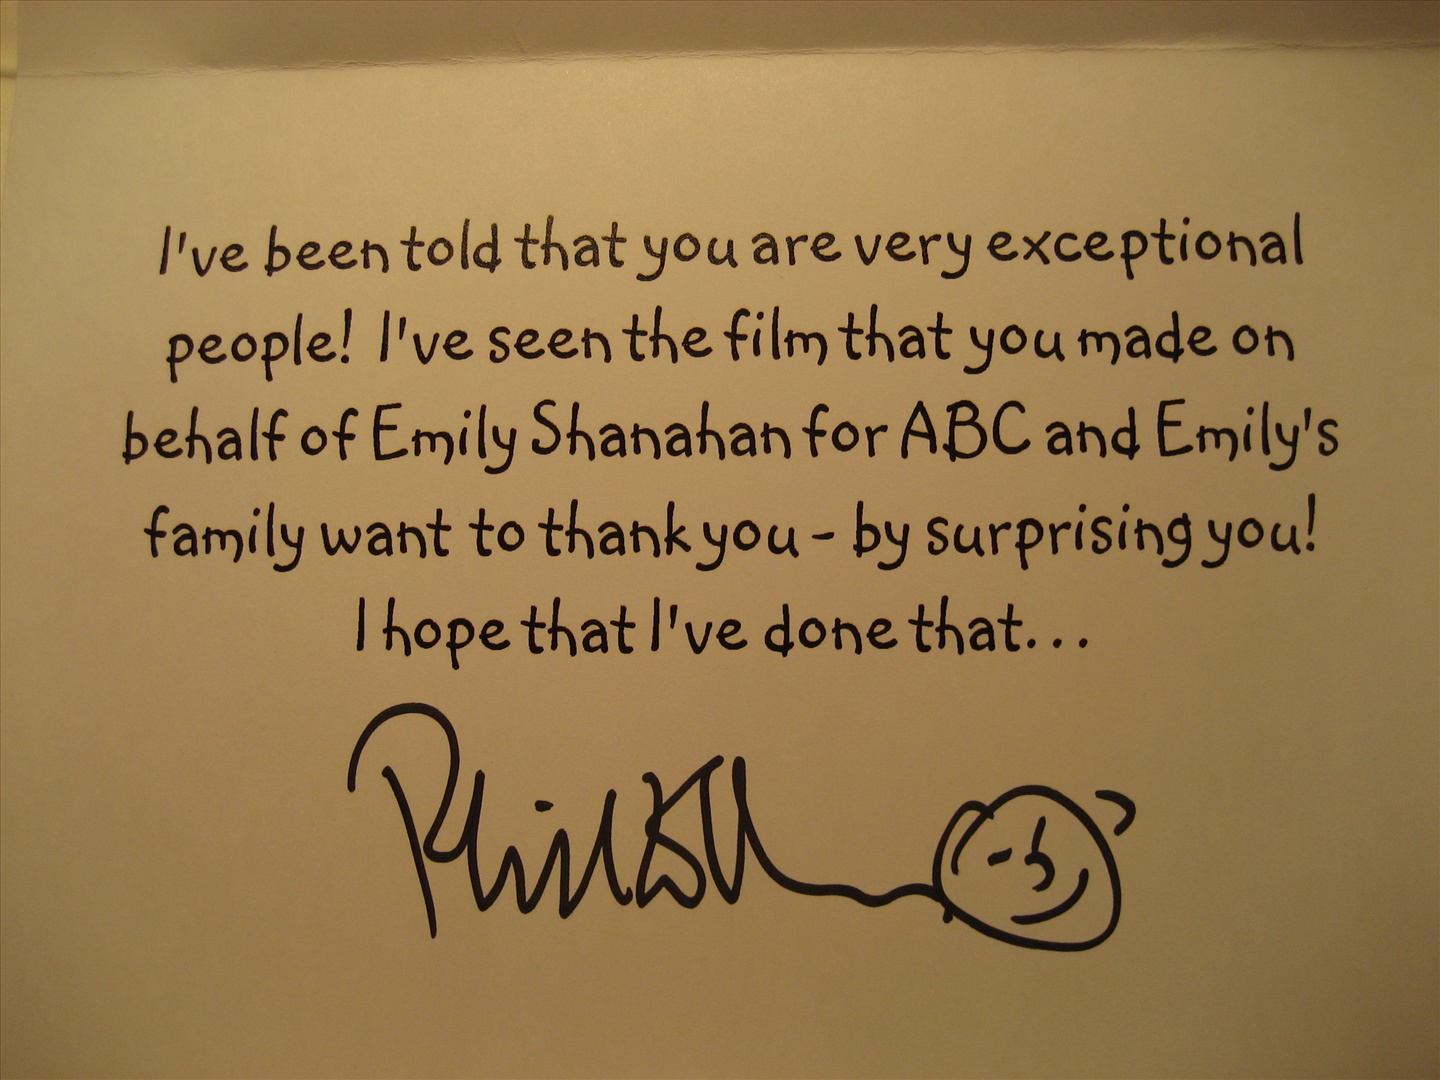 I've been told that you are very exceptional
people! I've seen the film that you made on
behalf of Emily Shanahan for ABC and Emily's
family want to thank you - by surprising you!
I hope that I've done that...